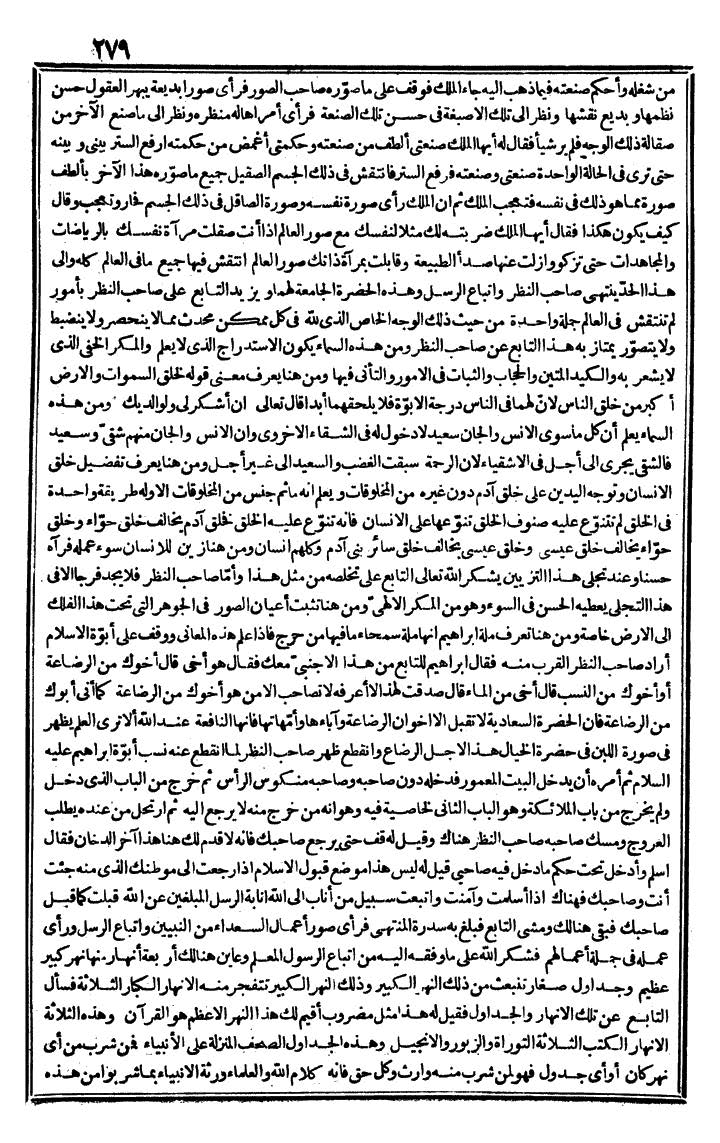 ٢٧٩
من شغله وأحكم صنعته فيما ذهب اليه جاء الملك فوقف على ما صوّره صاحب الصور فرأى صورا بديعة يبهر العقول حسن
نظمها وبديع نقشها ونظر الى تلك الاصبغة فى حسن تلك الصنعة فرأى أمرا هاله منظره ونظر الى ما صنع الآخر من
صقالة ذلك الوجه فلم ير شيأ فقال له أيها الملك صنعتى ألطف من صنعته وحكمتى أغمض من حكمته ارفع الستر بينى وبينه
حتى ترى فى الحالة الواحدة صنعتى وصنعته فرفع الستر فانتقش فى ذلك الجسم الصقيل جميع ما صوّره هذا الآخر بألطف
صورة مما هو ذلك فى نفسه فتعجب الملك ثم ان الملك رأى صورة نفسه وصورة الصاقل فى ذلك الجسم فحار وتعجب وقال
كيف يكون هكذا فقال أيها الملك ضربته لك مثلا لنفسك مع صور العالم اذا أنت صقلت مرآة نفسك بالرياضات
والمجاهدات حتى تزكو وازلت عنها صدأ الطبيعة وقابلت بمرآة ذاتك صور العالم انتقش فيها جميع ما فى العالم كله والى
هذا الحدّ ينتهى صاحب النظر واتباع الرسل وهذه الحضرة الجامعة لهما ويزيد التابع على صاحب النظر بأمور
لم تنتقش فى العالم جملة واحدة من حيث ذلك الوجه الخاص الذى لله فى كل ممكن محدث مما لا ينحصر ولا ينضبط
ولا يتصوّر يمتاز به هذا التابع عن صاحب النظر ومن هذه السماء يكون الاستدراج الذى لا يعلم والمكر الخفى الذى
لا يشعر به والكيد المتين والحجاب والثبات فى الامور والتأنى فيها ومن هنا يعرف معنى قوله لخلق السموات والارض
أكبر من خلق الناس لانّ لهما فى الناس درجة الابوّة فلا يلحقهما أبدا قال تعالى ان أشكر لى ولوالديك ومن هذه
السماء يعلم أن كل ما سوى الانس والجان سعيد لا دخول له فى الشقاء الاخروى وان الانس والجان منهم شقىّ وسعيد
فالشقى يجرى الى أجل فى الاشقياء لان الرحمة سبقت الغضب والسعيد الى غير أجل ومن هنا يعرف تفضيل خلق
الانسان وتوجه اليدين على خلق آدم دون غيره من المخلوقات ويعلم انه ما ثم جنس من المخلوقات الا وله طريقة واحدة
فى الخلق لم تتنوع عليه صنوف الخلق تنوّعها على الانسان فانه تنوّع عليه الخلق فخلق آدم يخالف خلق حوّاء وخلق
حوّاء يخالف خلق عيسى وخلق عيسى يخالف خلق سائر بنى آدم وكلهم انسان ومن هنا زين للانسان سوء عمله فرآه
حسنا وعند تجلى هذا التزيين يشكر الله تعالى التابع على تخلصه من مثل هذا وأمّا صاحب النظر فلا يجد فرجا الا فى
هذا التجلى يعطيه الحسن فى السوء وهو من المكر الالهىّ ومن هنا تثبت أعيان الصور فى الجوهر التى تحت هذا الفلك
الى الارض خاصة ومن هنا تعرف ملة ابراهيم انها ملة سمحاء ما فيها من حرج فاذا علم هذه المعانى ووقف على أبوّة الاسلام
أراد صاحب النظر القرب منه فقال ابراهيم للتابع من هذا الاجنبىّ معك فقال هو أخى قال أخوك من الرضاعة
أو أخوك من النسب قال أخى من الماء قال صدقت لهذا لا أعرفه لا تصاحب الا من هو أخوك من الرضاعة كما أنى أبوك
من الرضاعة فان الحضرة السعادية لا تقبل الا اخوان الرضاعة وآباءها وأمّهاتها فانها النافعة عند الله ألا ترى العلم يظهر
فى صورة اللبن فى حضرة الخيال هذا لاجل الرضاع وانقطع ظهر صاحب النظر لما انقطع عنه نسب أبوّة ابراهيم عليه
السلام ثم أمره أن يدخل البيت المعمور فدخله دون صاحبه وصاحبه منكوس الرأس ثم خرج من الباب الذى دخل
ولم يخرج من باب الملائكة وهو الباب الثانى لخاصية فيه وهو انه من خرج منه لا يرجع اليه ثم ارتحل من عنده يطلب
العروج ومسك صاحبه صاحب النظر هناك وقيل له قف حتى يرجع صاحبك فانه لا قدم لك هنا هذا آخر الدخان فقال
اسلم وأدخل تحت حكم ما دخل فيه صاحبى قيل له ليس هذا موضع قبول الاسلام اذا رجعت الى موطنك الذى منه جئت
أنت وصاحبك فهناك اذا أسلمت وآمنت واتبعت سبيل من أناب الى الله انابة الرسل المبلغين عن الله قبلت كما قبل
صاحبك فبقى هنالك ومشى التابع فبلغ به سدرة المنتهى فرأى صور أعمال السعداء من النبيين واتباع الرسل ورأى
عمله فى جملة أعمالهم فشكر الله على ما وفقه اليه من اتباع الرسول المعلم وعاين هنالك أربعة أنهار منها نهر كبير
عظيم وجداول صغار تنبعث من ذلك النهر الكبير وذلك النهر الكبير تتفجر منه الانهار الكبار الثلاثة فسأل
التابع عن تلك الانهار والجداول فقيل له هذا مثل مضروب أقيم لك هذا النهر الاعظم هو القرآن وهذه الثلاثة
الانهار الكتب الثلاثة التوراة والزبور والانجيل وهذه الجداول الصحف المنزلة على الأنبياء فمن شرب من أى
نهر كان أو أى جدول فهو لمن شرب منه وارث وكل حق فانه كلام الله والعلماء ورثة الانبياء بما شربوا من هذه